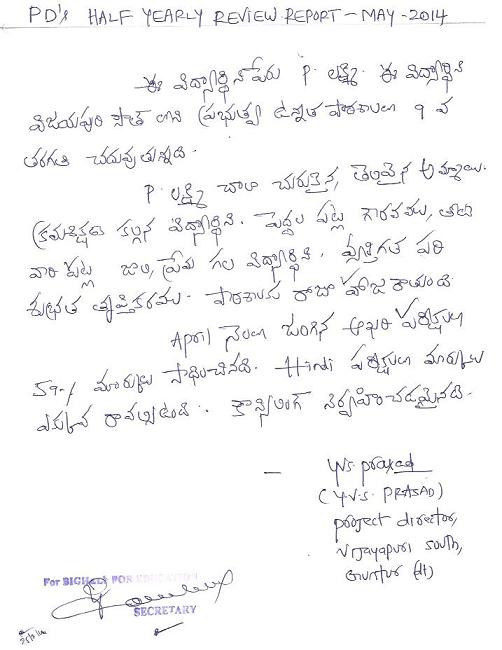 PD's HALF YEARLY REVIEW REPORT - MAY - 2014
ఈ విద్యార్థిని పేరు P. లక్ష్మి. ఈ విద్యార్థిని
విజయపురి సౌత్ లోని (ప్రభుత్వ) ఉన్నత పాఠశాలలో 9 వ
తరగతి చదువుతున్నది.
P. లక్ష్మి చాలా చురుకైన, తెలివైన అమ్మాయి.
క్రమశిక్షణ కల్గిన విద్యార్థిని. పెద్దల పట్ల గౌరవము, తోటి
వారి పట్ల జాలి, ప్రేమ గల విద్యార్థిని. వ్యక్తిగత పరి
శుభ్రత తృప్తికరము. పాఠశాలకు రోజూ హాజరౌతుంది.
April నెలలో జరిగిన ఆఖరి పరీక్షలలో
59% మార్కులు సాధించినది. Hindi పరీక్షలో మార్కులు
ఎక్కువ రావల్సి ఉంది. కౌన్సిలింగ్ నిర్వహించడమైనది.
Y.V.S. Prasad
(Y.V.S. PRASAD)
project director,
Vijayapuri South,
Guntur (dt)
For BIGHELP FOR EDUCATION
SECRETARY